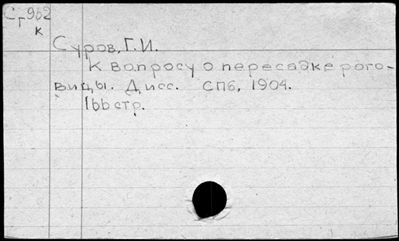 Ст962
к
Суров, Г. И.
К вопросу о пересадке рого-
вицы. Дисс. СПб, 1904.
166 стр.